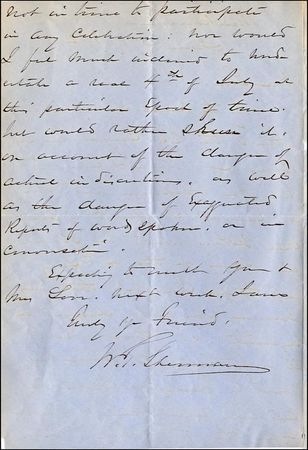 not in time to participate
in any Celebration: nor would
I feel much inclined to
a real 4th of July at
this particular Epoch of time.
but would rather it,
on account of the danger of
actual indiscretions, as well
as the danger of Exaggerated
Reports of words spoken, or in

Expecting to meet you &
Mrs next week, I am
Your Friend,
W. T. Sherman